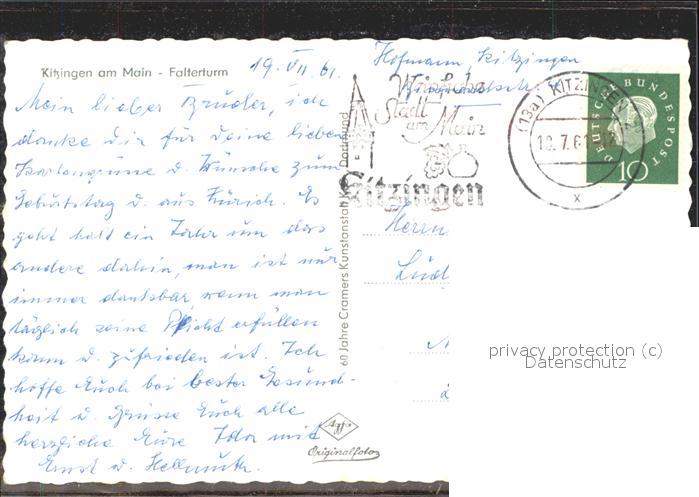 Kitzingen am Main - Falterturm
19. VII 61.
Mein lieber Bruder, ich
danke dir für deine lieben
Kartengrüsse u. Wünsche zum
Geburtstag u. aus Zürich. Es
geht halt ein Jahr um das
andere dahin, man ist nur
immer dankbar, wenn man
täglich seine Pflicht erfüllen
kann u. zufrieden ist. Ich
hoffe Euch bei bester Gesund-
heit u. Grüsse Euch alle
herzliche Eure Ida mit
Ernst u. Hellmuth.
60 Jahre Cramers Kunstanstalt KG, Dortmund
Agfa
Originalfoto
Hofmann, Kitzingen
Stadt
am Main
Kitzingen
(13a) KITZINGEN
7.61
x
DEUTSCHE BUNDESPOST
10
Herrn
privacy protection (c)
Datenschutz